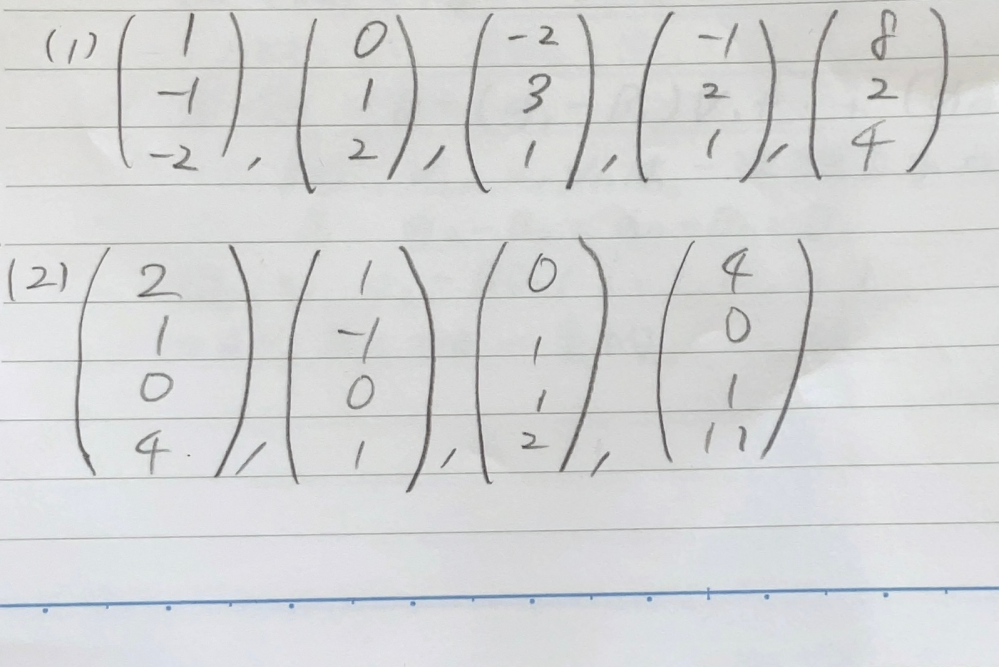 (1) (1 -1 -2), (0 1 2), (-2 3 1), (-1 2 1), (8 2 4)
(2) (2 1 0 4), (1 -1 0 1), (0 1 1 2), (4 0 1 11)